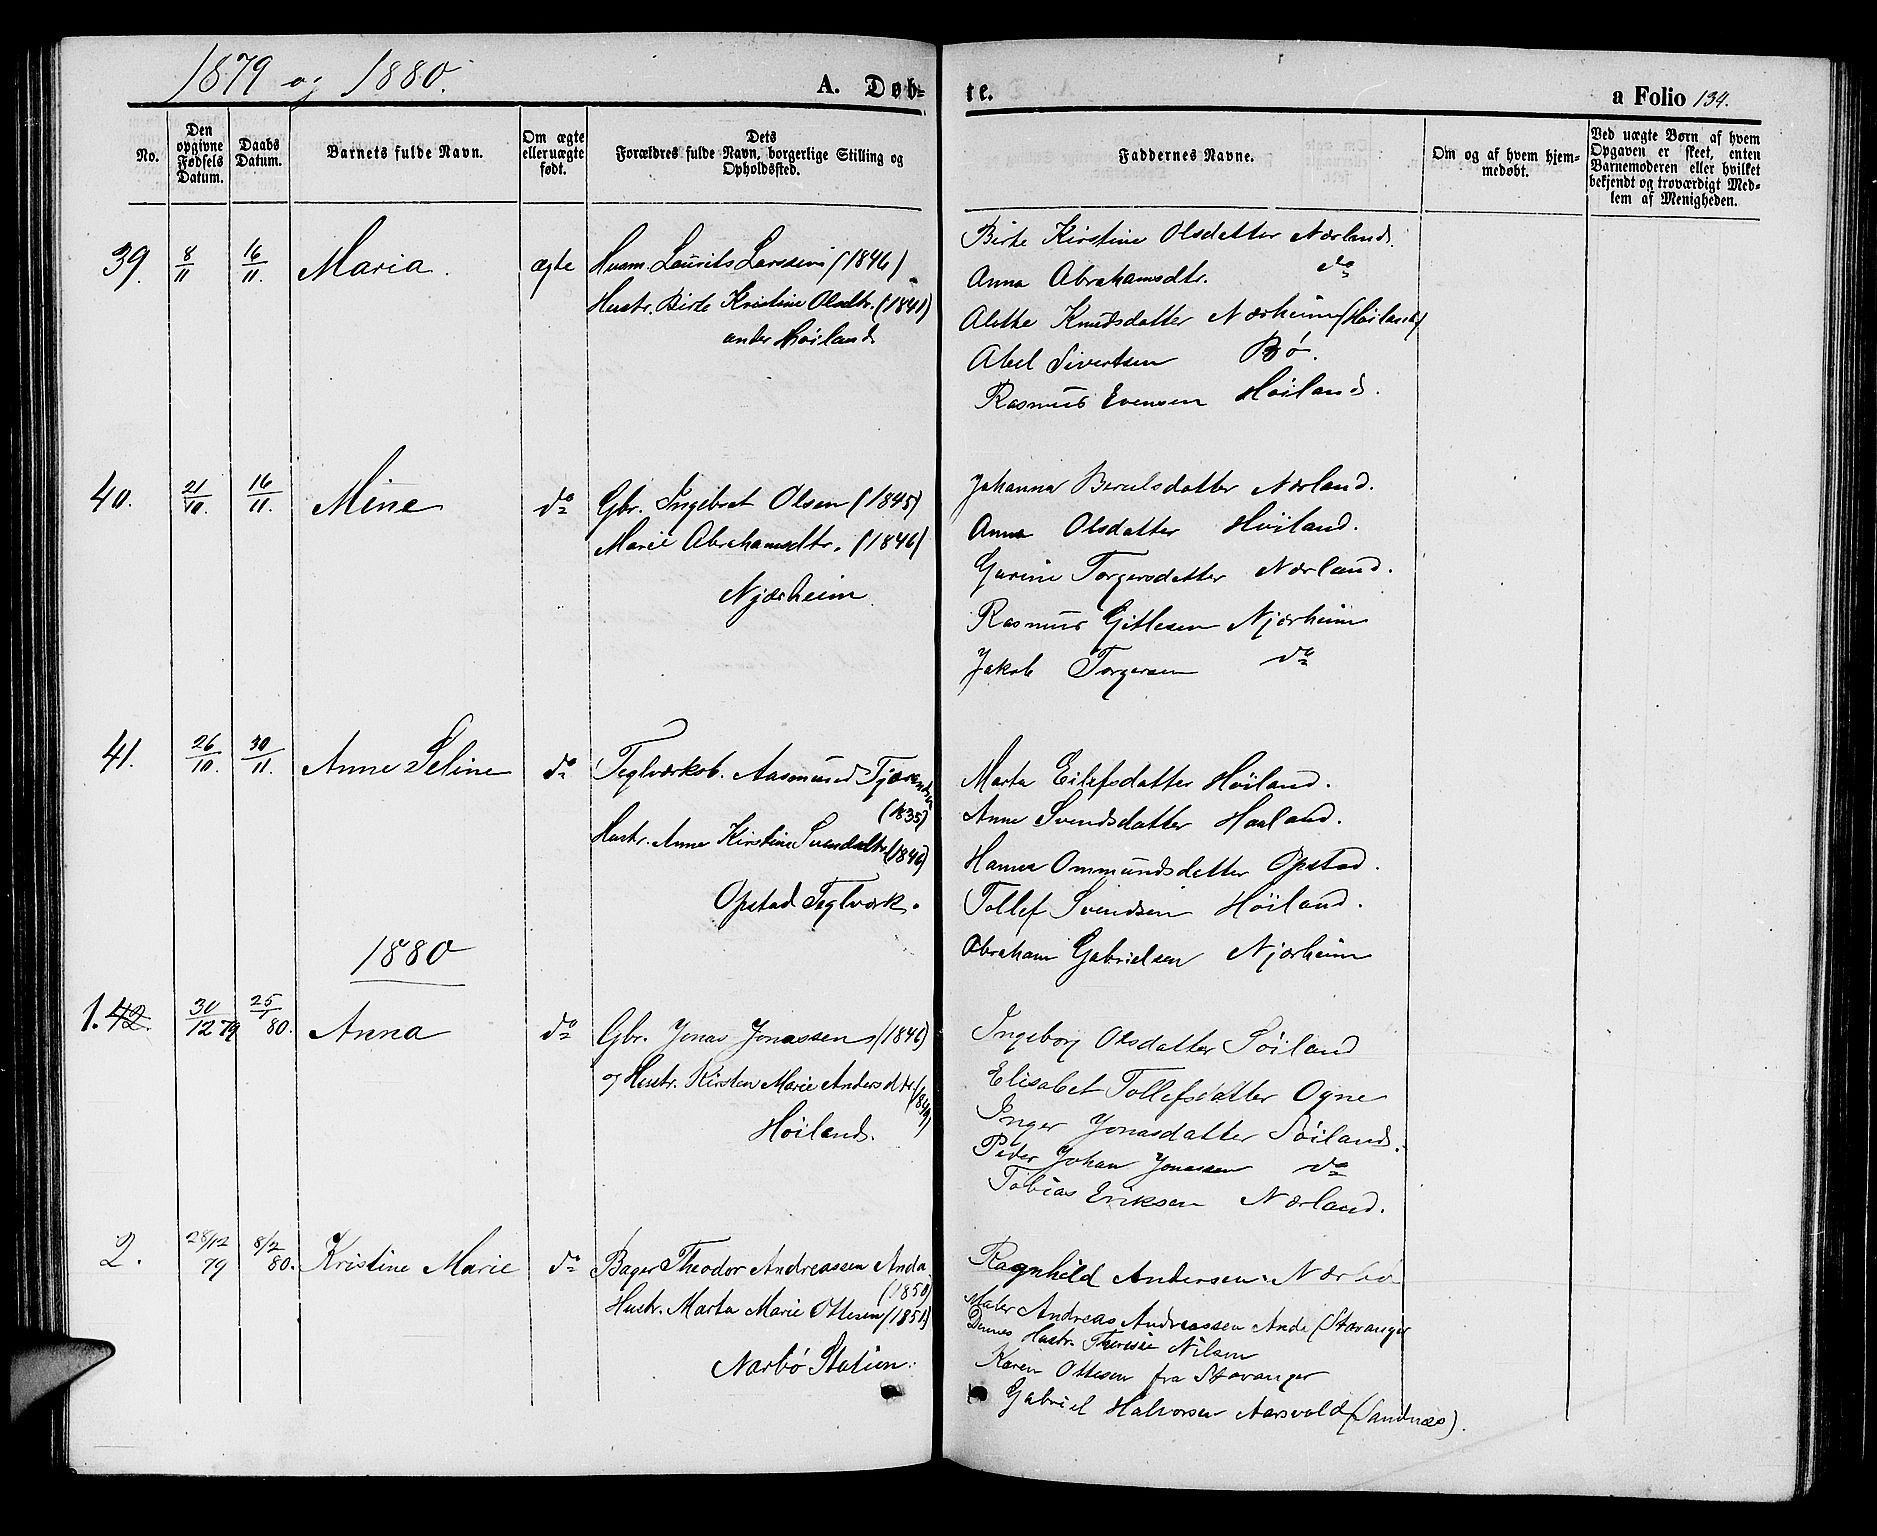 1879 og 1880.
A. Døb-
te.
a Folio 134.
No.
Den opgivne Fødsels Datum.
Daabs Datum.
Barnets fulde Navn.
Om ægte eller uægte født.
Dets Forældres fulde Navn, borgerlige Stilling og Opholdssted.
Faddernes Navne.
Om og af hvem hjemmedøbt.
Ved uægte Børn af hvem Opgaven er skeet, enten Barnemoderen eller hvilket bekjendt og troværdigt Medlem af Menigheden.
39. 8/11 16/11. Maria. ægte Husm. Laurits Larssen (1846)
Hustr. Birte Kristine Olsdtr. (1841)
under Höiland
Birte Kirstine Olsdatter Nærland.
Anna Abrahamsdtr. do
Alethe Knudsdatter Nærheim (Höiland)
Abel Sivertsen Bö.
Rasmus Evensen Höiland.
40. 21/10. 16/11. Mine do Gbr. Ingebret Olsen (1845)
Marie Abrahamsdtr. (1846)
Njærheim
Johanna Berulsdatter Nærland.
Anna Olsdatter Höiland.
Gurine Torgersdatter Nærland.
Rasmus Gitlesen Njærheim
Jakob Torgersen do
41. 26/10. 30/11. Anne Seline do Teglværksb. Aasmund
(1835)
Hustr. Anne Kirstine Svendsdtr (1846)
Opstad Teglværk.
Marta Eilefsdatter Höiland.
Anne Svendsdatter Haaland.
Hanna Ommundsdatter Opstad.
Tollef Svendsen Höiland.
Abraham Gabrielsen Njærheim
1880
1. 42. 30/12 79 25/1 80. Anna do Gbr. Jonas Jonassen (1846)
og Hustr. Kirsten Marie Andersdtr
Höiland.
Ingeborg Olsdatter Söiland
Elisabet Tollefsdatter Ogne
Inger Jonasdatter Söiland.
Peder Johan Jonassen do
Tobias Eriksen Nærland.
2. 28/12 79 8/2 80. Kristine Marie do Bager Theodor Andreassen Anda
(1850)
Hustr. Marta Marie Ottesen (1851)
Nærbö Station.
Ragnhild Andersen. Nærbö
Maler Andreas Andreassen Anda (Stavanger
Dennes Hustr. Therese Nilsen
Karen Ottesen fra Stavanger
Gabriel Halvorsen Aarsvold (Sandnæs).